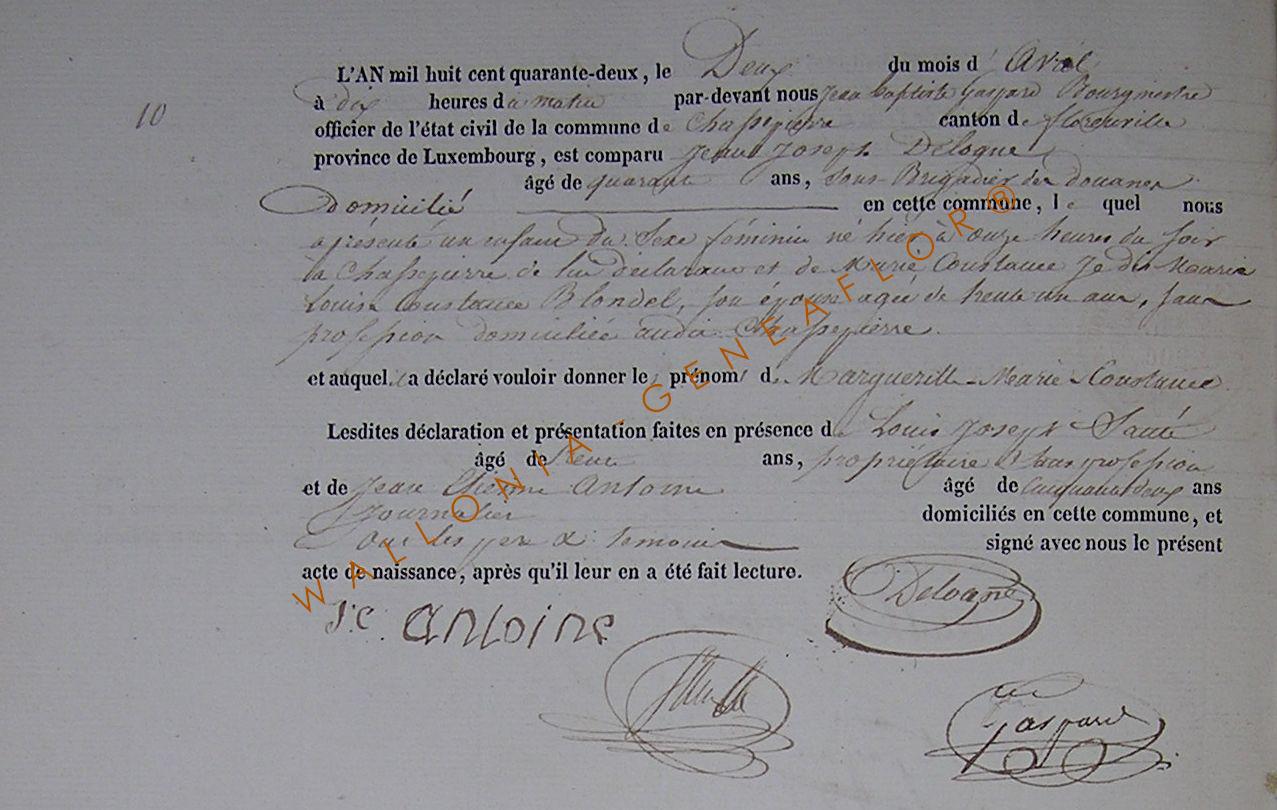 10
L'AN mil huit cent quarante-deux, le Deux du mois d'Avril
à dix heures du matin par-devant nous Jean Baptiste Gaspard Bourgmestre
officier de l'état civil de la commune de Chassepierre canton de florenville
province de Luxembourg, est comparu Jean Joseph Delogne
âgé de quarante ans, Sous-Brigadier des douanes
Domicilié en cette commune, le quel nous
a présenté un enfant du Sexe féminin né hier à onze heures du soir
à Chassepierre de lui déclarant et de Marie Constance Je dis Marie
Louise Constance Blondel, son épouse agée de trente un ans, sans
profession domiciliée audit Chassepierre.
et auquel il a déclaré vouloir donner les prénoms de Margueritte-Marie-Constance
Lesdites déclaration et présentation faites en présence de Louis Joseph
âgé de ans, propriétaire sans profession
et de Jean Etienne Antoine âgé de cinquante deux ans
Journalier domiciliés en cette commune, et
Ont les père & temoins signé avec nous le présent
acte de naissance, après qu'il leur en a été fait lecture.
J.e. antoine
Delogne
Gaspard
WALLONIA-GENEAFLOR®